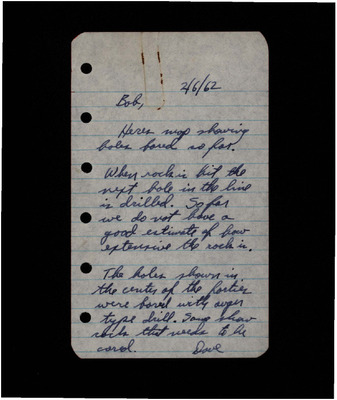 2/6/62
Bob,
Heres map showing
holes bored so far.
When rock is hit the
next hole in the line
is drilled. So far
we do not have a
good estimate of how
extensive the rock is.
The holes shown in
the center of the
were bored with auger
type drill. Some show
rock that needs to be
cored. Dave